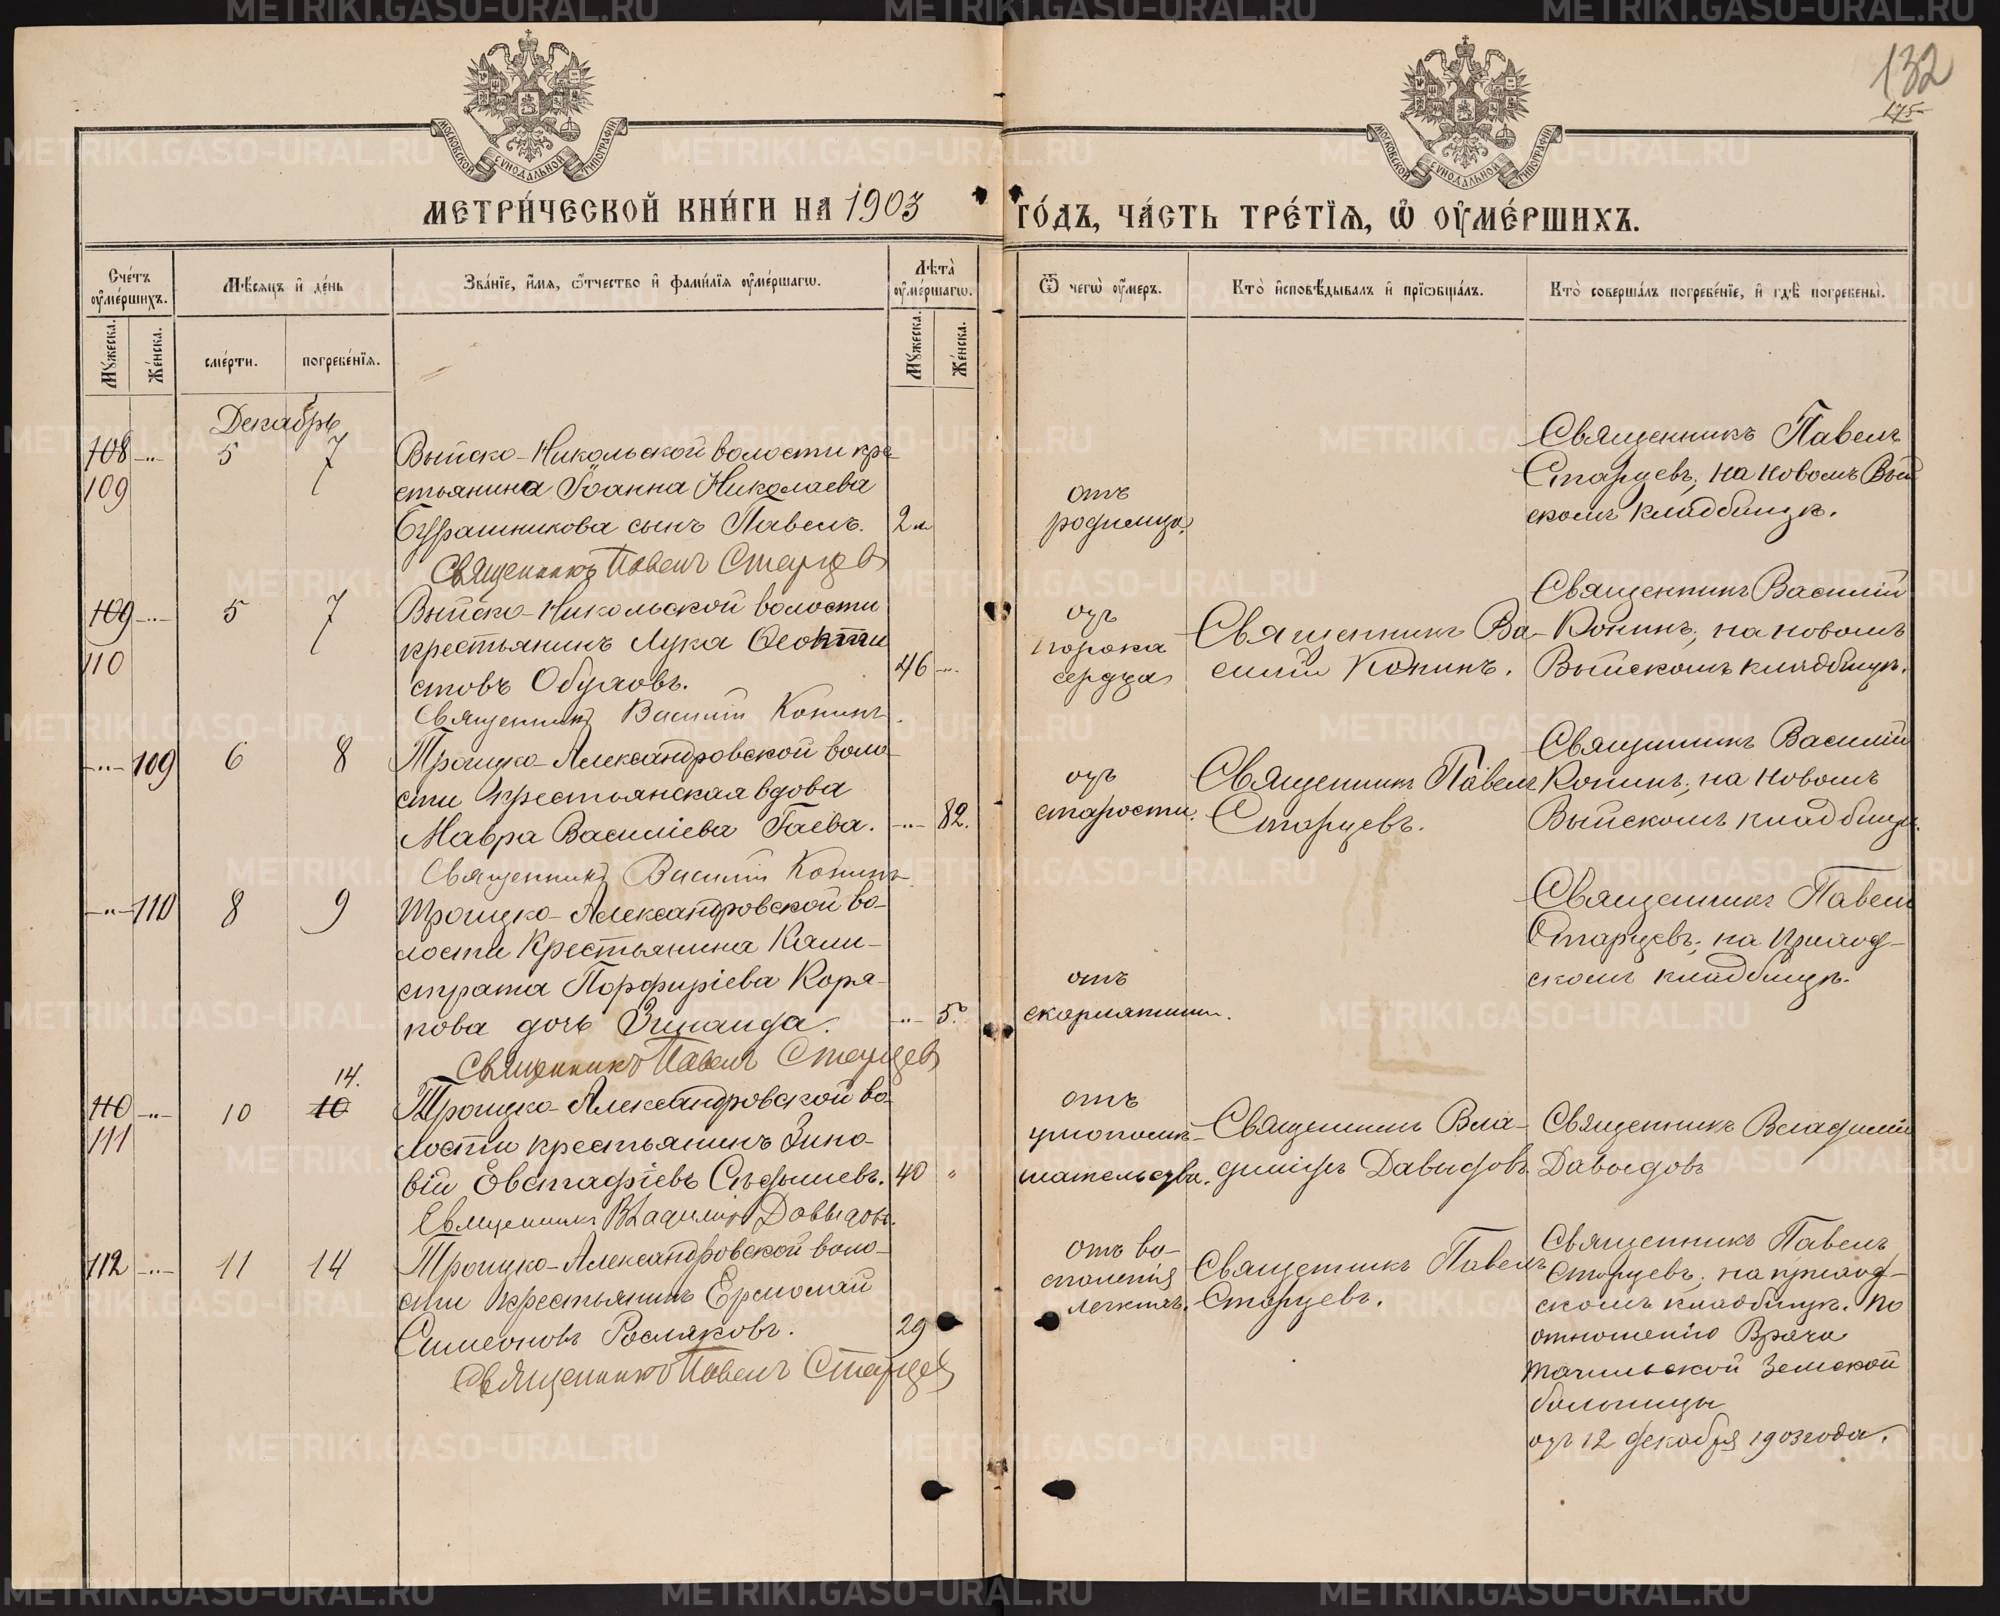 132
175
МОСКОВСКОЙ СѴНОДАЛЬНОЙ ТИПОГРАФІИ
МОСКОВСКОЙ СѴНОДАЛЬНОЙ ТИПОГРАФІИ
МЕТРИ́ЧЕСКОЙ КНИ́ГИ НА 1903 ГО́ДЪ, ЧА́СТЬ ТРЕ́ТІѦ, Ѡ҆ ОУ҆МЕ́РШИХЪ.
Сче́тъ оу҆ме́ршихъ.
Мѣ́сяцъ и҆ де́нь
Зва́нїе, и҆́мя, ѻ҆́тчество и҆ фами́лїя оу҆ме́ршагѡ.
Лѣта̀ оу҆ме́ршагѡ.
Ѿ чегѡ̀ оу҆́меръ.
Кто̀ и҆сповѣ́дывалъ и҆ прїѡбща́лъ.
Кто̀ соверша́лъ погребе́нїе, и҆ гдѣ̀ погребены̀.
Мꙋ́жеска.
Же́нска.
сме́рти.
погребе́нїя.
Мꙋ́жеска.
Же́нска.
Декабрь
108 -"- 5 7
109
Выйско-Никольской волости кре-
стьянина Іоанна Николаева
Бурашникова сынъ Павелъ. 2 м
Священникъ Павелъ Старцев
отъ
родимца.
Священникъ Павелъ
Старцевъ, на новомъ Вый
скомъ кладбищѣ.
109 -"- 5 7
110
Выйско-Никольской волости
крестьянинъ Лука Ѳеокти
стовъ Обуховъ. 46 -"-
Священникъ Василій Конинъ.
отъ
порока
сердца
Священникъ Ва-
силій Конинъ.
Священникъ Василій
Конинъ, на новомъ
Выйскомъ кладбищѣ.
-"- 109 6 8
Троицко-Александровской воло-
сти крестьянская вдова
Мавра Василіева Гаева. -"- 82.
Священникъ Василій Конинъ
отъ
старости.
Священникъ Павелъ
Старцевъ.
Священникъ Василій
Конинъ, на новомъ
Выйскомъ кладбищѣ.
-"- 110 8 9
Троицко-Александровской во-
лости крестьянина Кали-
страта Порфиріева Коря-
кова дочь Зинаида. -"- 5.
Священникъ Павелъ Старцев
отъ
скарлатины.
Священникъ Павелъ
Старцевъ, на приход-
скомъ кладбищѣ.
14.
110 -"- 10 10
111
Троицко-Александровской во-
лости крестьянинъ Зино-
вій Евстафіевъ 40 "
Священникъ Владиміръ Давыдовъ.
отъ
умопомѣ-
шательства.
Священникъ Вла-
диміръ Давыдовъ
Священникъ Владимiй
Давыдовъ
112 -"- 11 14
Троицко-Александровской воло-
сти крестьянинъ Ермолай
Симеоновъ Росляковъ. 29
Священникъ Павелъ Старцев
отъ во-
спаленія
легкихъ.
Священникъ Павелъ
Старцевъ.
Священникъ Павелъ
Старцевъ, на приход-
скомъ кладбищѣ. По
отношенію Врача
Тагильской Земской
больницы
отъ 12 декабря 1903 года.
METRIKI.GASO-URAL.RU